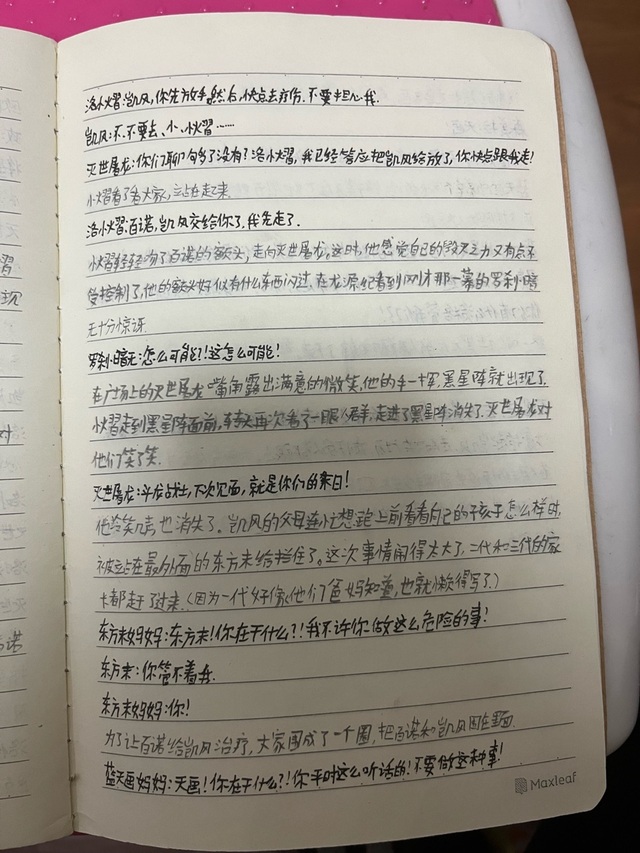 洛小熠:凯风,你先放手,然后,快点去疗伤.不要担心我.
凯风:不.不要去、小、小熠……
灭世屠龙:你们聊够了没有?洛小熠,我已经答应把凯风给放了,你快点跟我走!
小熠看了看大家,站起来.
洛小熠:百诺,凯风交给你了.我先走了.
小熠轻轻吻了百诺的额头,走向灭世屠龙,这时,他感觉自己的毁灭之力又有点不
能控制了,他的额头好似有什么东西闪过.在龙源纪看到刚才那一幕的罗刹·暗
无十分惊讶.
罗刹·暗无:怎么可能?!这怎么可能!
在广场上的灭世屠龙嘴角露出满意的微笑.他的手一挥,黑星阵就出现了.
小熠走到黑星阵面前,转头再次看了一眼人群,走进了黑星阵消失了.灭世屠龙对
他们笑了笑.
灭世屠龙:斗龙战士,下次见面,就是你们的末日!
他冷笑几声也消失了.凯风的父母连忙想跑上前看看自己的孩子怎么样时,
被站在最外面的东方末给拦住了.这次事情闹得太大了,二代和三代的家
长都赶了过来.(因为一代好像他们爸妈知道,也就懒得写了.)
东方末妈妈:东方末!你在干什么?!我不许你做这么危险的事!
东方末:你管不着我.
东方末妈妈:你!
为了让百诺给凯风治疗,大家围成了一个圈,把百诺和凯风围在里面.
蓝天画妈妈:天画!你在干什么?!你平时这么听话的!不要做这种事!
Maxleaf